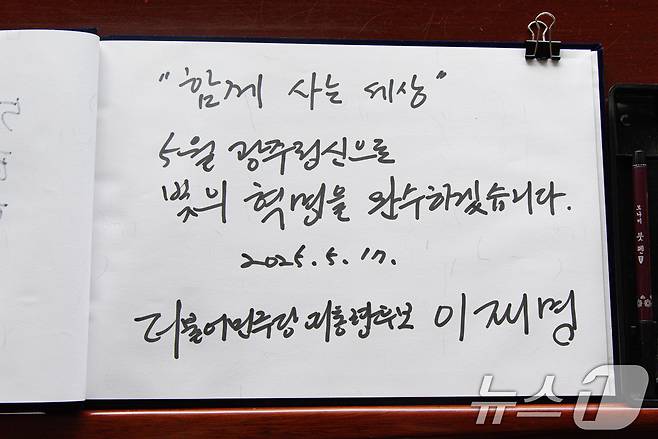 "함께 사는 세상"
5월 광주정신으로
빛의 혁명을 완수하겠습니다.
2025.5.17.
더불어민주당 대통령후보 이재명
모나미 붓펜
뉴스1